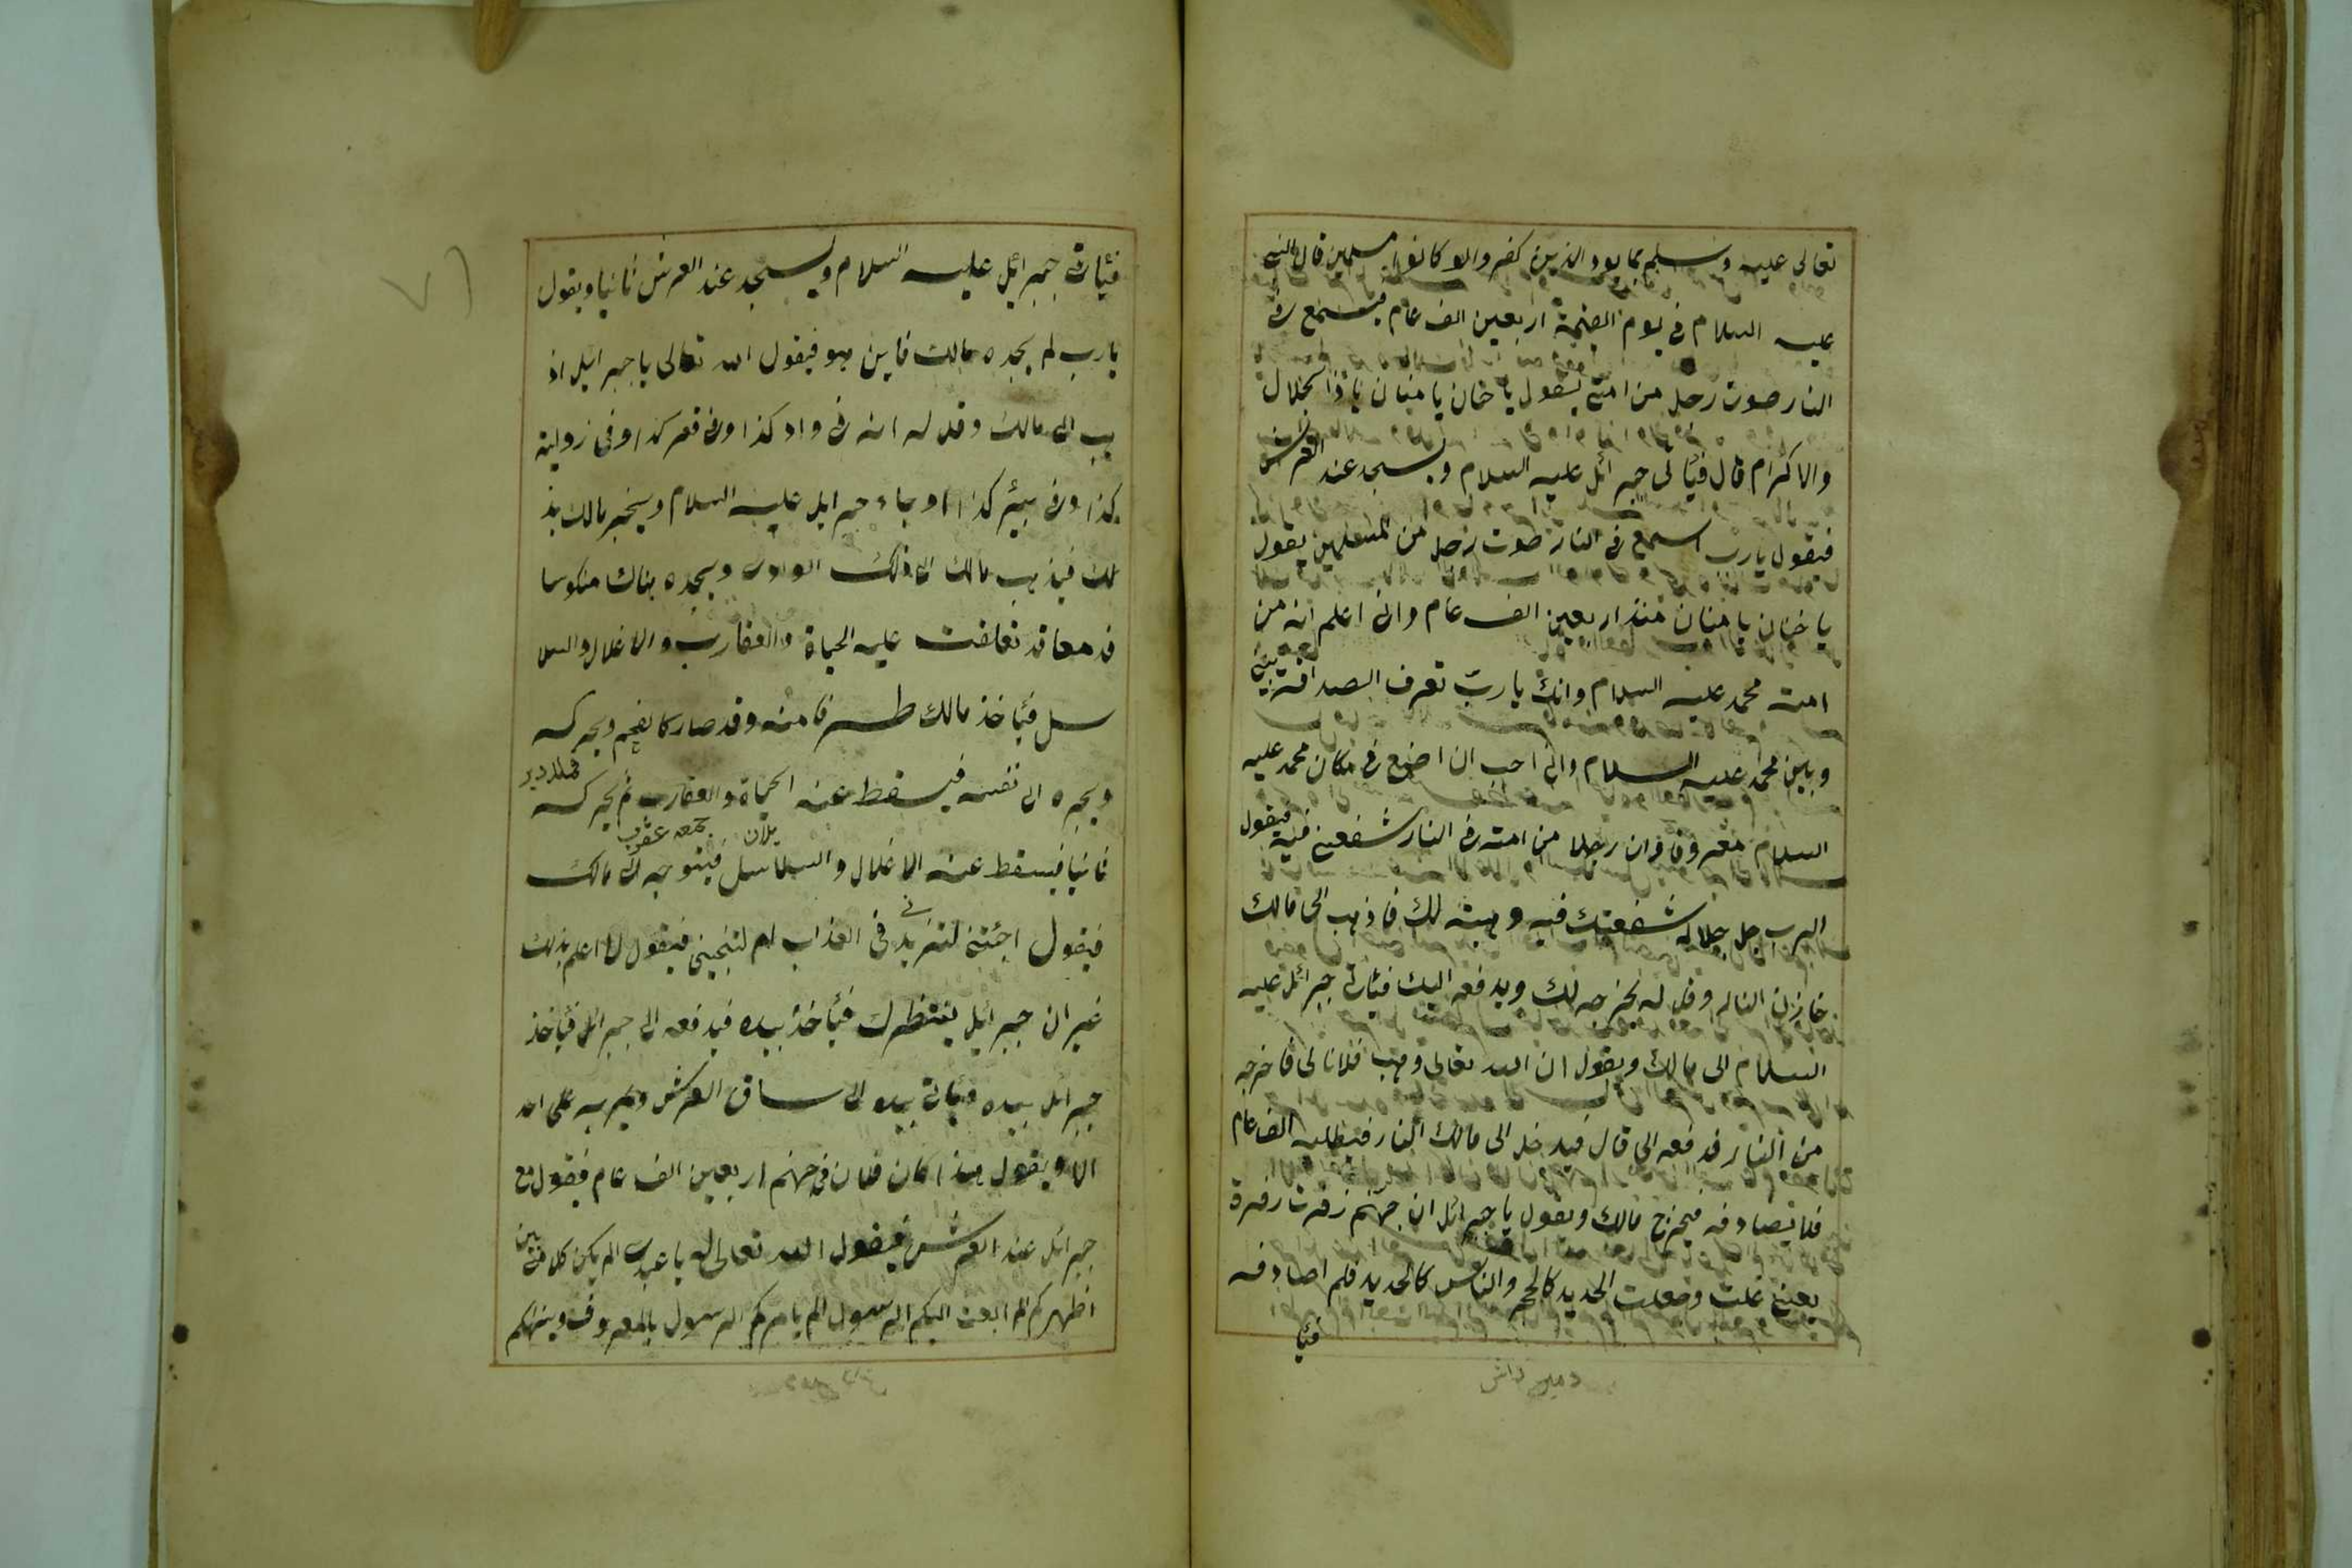 تعالى عليه وسلم ربما يود الذين كفروا لو كانوا مسلمين قال النبى
عليه السلام فى يوم القيمة اربعين الف عام فيسمع فى
النار صوت رجل من امتى يقول يا حنان يا منان يا ذا الجلال
والاكرام قال فيأتى جبرائل عليه السلام ويسجد عند العرش
فيقول يارب اسمع فى النار صوت رجل من يقول
يا حنان يا منان منذ اربعين الف عام وانى اعلم انه من
امت محمد عليه السلام وانك يا رب تعرف الصداقة بينى
وبين محمد عليه السلام وانى احب ان اصنع فى مكان محمد عليه
السلام معروفا فان رجلا من امته فى النار شفعنى فيه فيقول
الرب جل جلاله شفعتك فيه وهبته لك فاذهب الى مالك
خازن النار وقل له يخرجه لك ويدفعه اليك فيأتى جبرائل عليه
السلام الى مالك ويقول ان الله تعالى وهب فلانا لى فاخرجه
من النار فدفعه الى قال فيدخل الى مالك النار فيطلبه الف عام
فلا يصادفه فيخرج مالك ويقول يا جبرائل ان جهنم زفرت زفرة
يعنى غلت وجعلت الحديد كالحجر والناس كالحديد فلم اصادفه
فيأ
دمير داش
فيأتى جبرائل عليه السلام ويسجد عند العرش ثانيا ويقول
يارب لم يجده مالك فاين هو فيقول الله تعالى يا جبرائيل اذ
هب الى مالك وقل له انه فى واد كذا وفى قعر كذا وفى زواية
كذا وفى بيئر كذا وجاء جبرايل عليه السلام ويخبر مالك بذ
لك فيذهب مالك الى ذلك الوادى ويجده هناك منكوسا
قد تعلقت عليه الحياة والعقارب والاغلال والسلا
سل فيأخذ مالك طرفا منه وقد صار كالفحم ويحركه
ويجره الى نفسه فيسقط عنه الحياة والعقارب ثم يحركه
يلان جمعه عقرب
ثانيا فيسقط عنه الاغلال والسلاسل فيتوجه الى مالك
فيقول اجئتنى لتزيد فى العذاب ام لتنجينى فيقول لا اعلم بذلك
غير ان جبرائيل ينتظرك فيأخذ بيده فيدفعه الى جبرائل فيأخذ
جبرائل بيده فيأتى بيده الى ساق العرش ويمر به على احد
الا ويقول هذا كان فلان فى جهنم اربعين الف عام فيقول مع
جبرائل عند العرش فيقول الله تعالى له يا عبدى الم يكن كلامى بين
اظهركم الم ابعث اليكم الرسول الم يامركم الرسول بالمعروف وينهاكم